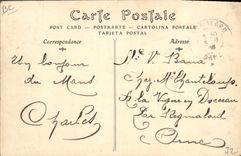 BC
Carte Postale
POST CARD - POSTKARTE - CARTOLINA POSTALE
TARJETA POSTAL
Correspondance
Adresse
Un bonjour
du Mans
Charles
Mr V. Baria
Chez Mr Chanteloup
à la Vigne Doceau
Par Regmalard
Orne
72